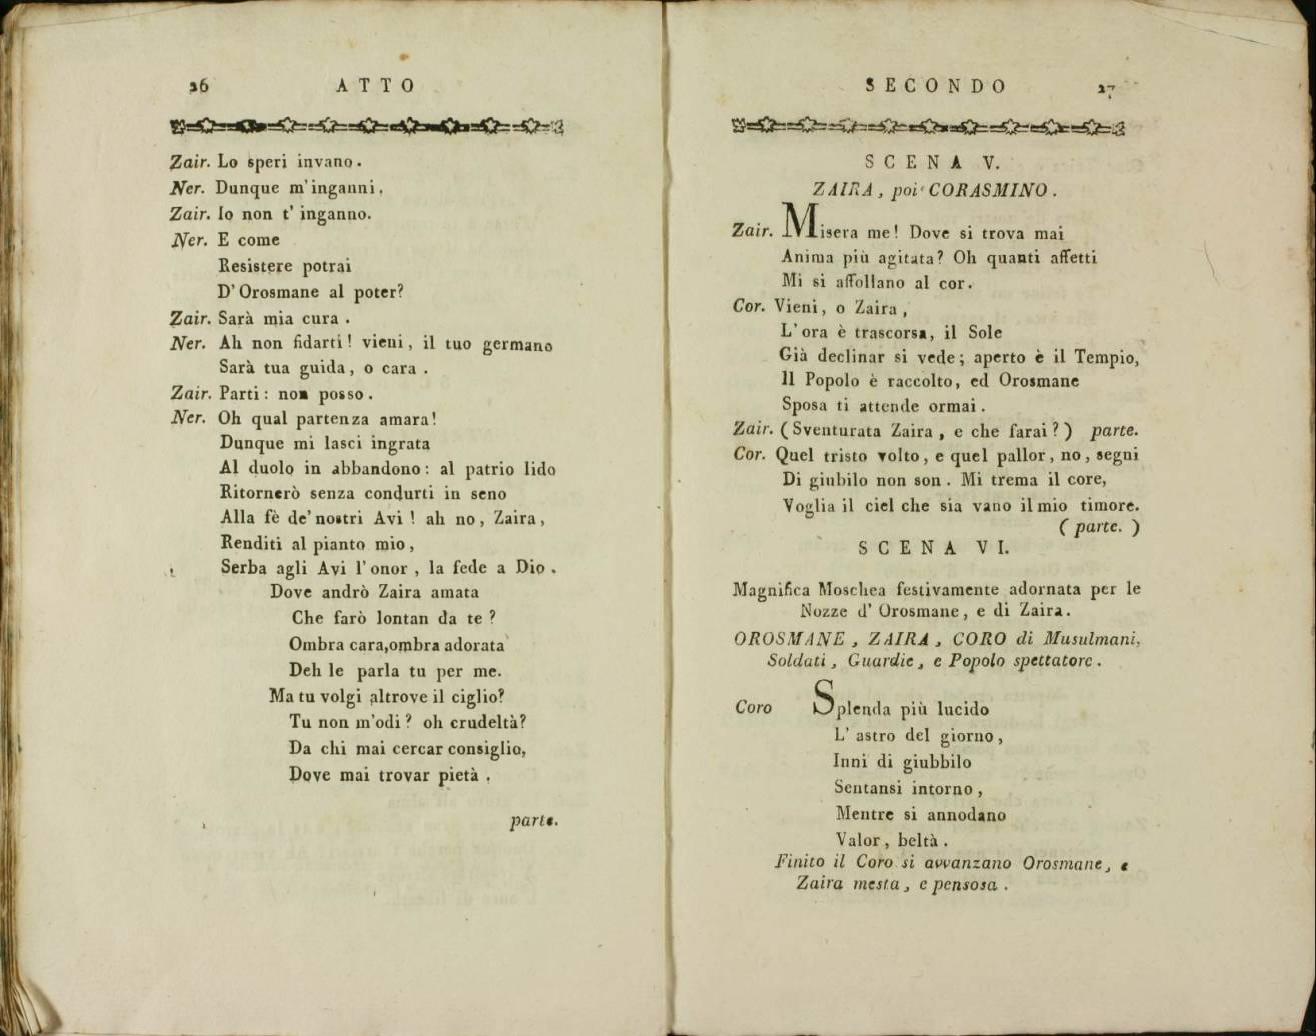 26 ATTO
Zair. Lo speri invano.
Ner. Dunque m'inganni,
Zair. Io non t'inganno.
Ner. E come
Resistere potrai
D'Orosmane al poter?
Zair. Sarà mia cura.
Ner. Ah non fidarti! vieni, il tuo germano
Sarà tua guida, o cara.
Zair. Parti: non posso.
Ner. Oh qual partenza amara!
Dunque mi lasci ingrata
Al duolo in abbandono: al patrio lido
Ritornerò senza condurti in seno
Alla fè de' nostri Avi! ah no, Zaira,
Renditi al pianto mio,
Serba agli Avi l'onor, la fede a Dio.
Dove andrò Zaira amata
Che farò lontan da te?
Ombra cara, ombra adorata
Deh le parla tu per me.
Ma tu volgi altrove il ciglio?
Tu non m'odi? oh crudeltà?
Da chi mai cercar consiglio,
Dove mai trovar pietà.
parte.
SECONDO 27
SCENA V.
ZAIRA, poi CORASMINO.
Zair. Misera me! Dove si trova mai
Anima più agitata? Oh quanti affetti
Mi si affollano al cor.
Cor. Vieni, o Zaira,
L'ora è trascorsa, il Sole
Già declinar si vede; aperto è il Tempio,
Il Popolo è raccolto, ed Orosmane
Sposa ti attende ormai.
Zair. (Sventurata Zaira, e che farai?) parte.
Cor. Quel tristo volto, e quel pallor, no, segni
Di giubilo non son. Mi trema il core,
Voglia il ciel che sia vano il mio timore.
(parte.)
SCENA VI.
Magnifica Moschea festivamente adornata per le
Nozze d'Orosmane, e di Zaira.
OROSMANE, ZAIRA, CORO di Musulmani,
Soldati, Guardie, e Popolo spettatore.
Coro Splenda più lucido
L'astro del giorno,
Inni di giubbilo
Sentansi intorno,
Mentre si annodano
Valor, beltà.
Finito il Coro si avvanzano Orosmane, e
Zaira mesta, e pensosa.